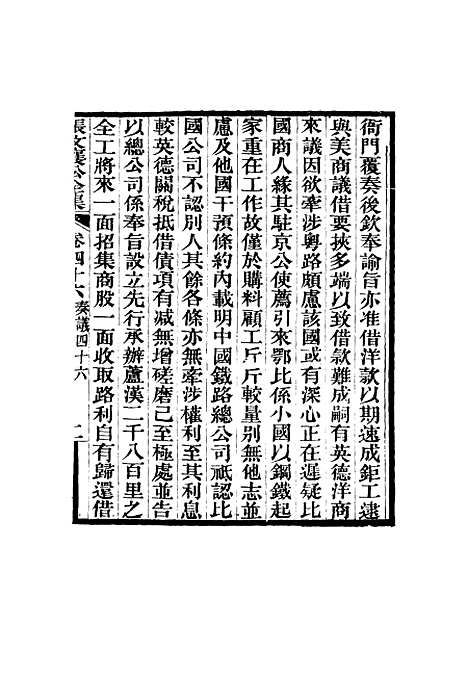 衙門覆奏後欽奉諭旨亦准借洋款以期速成鉅工逮
與美商議借要挾多端以致借款難成嗣有英德洋商
來議因欲牽涉粵路頗慮該國或有深心正在遲疑比
國商人緣其駐京公使薦引來鄂比係小國以鋼鐵起
家重在工作故僅於購料顧工斤斤較量別無他志並
慮及他國干預條約內載明中國鐵路總公司祇認比
國公司不認別人其餘各條亦無牽涉權利至其利息
較英德關稅抵借債項有減無增磋磨已至極處並告
以總公司係奉旨設立先行承辦蘆漢二千八百里之
全工將來一面招集商股一面收取路利自有歸還借
張文襄公全集 卷四十六 奏議四十六 二